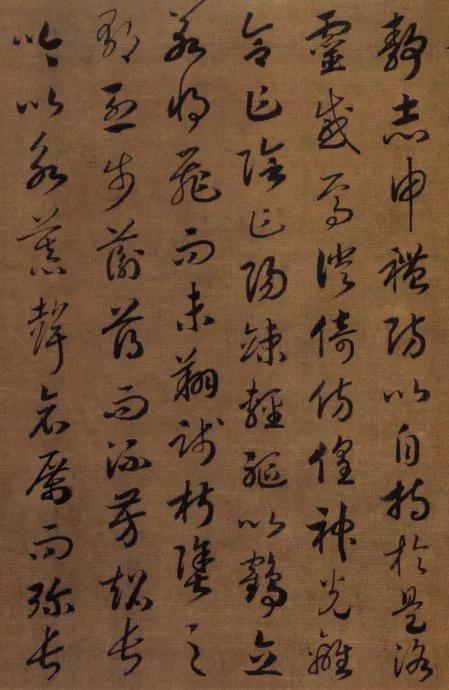 靜志申禮防以自持於是洛
靈感焉徙倚彷徨神光離
合乍陰乍陽竦輕軀以鶴立
若將飛而未翔踐椒塗之
郁烈步蘅薄而流芳超長
吟以永慕聲哀厲而彌長